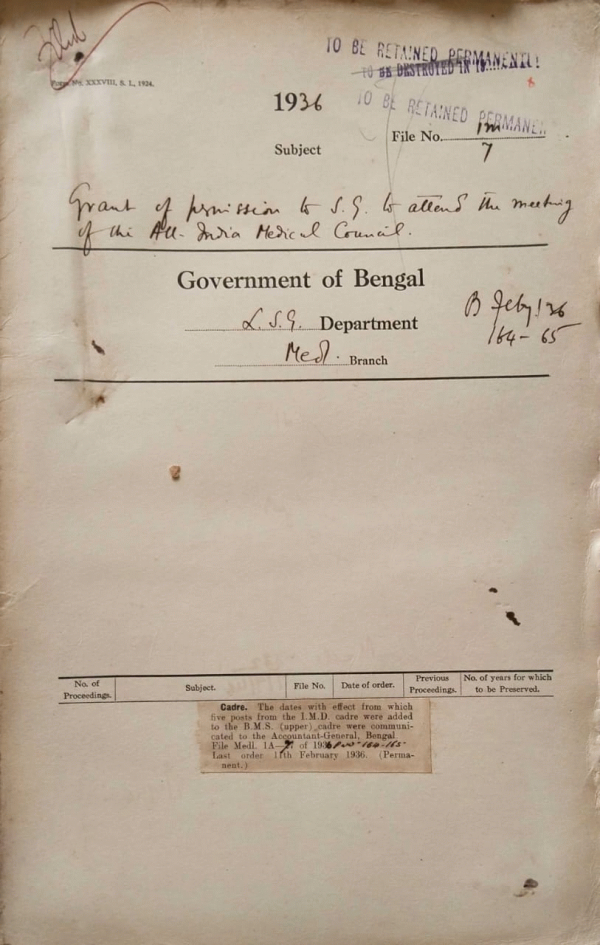 Filed
TO BE RETAINED PERMANENTLY
TO BE DESTROYED IN 19
Form No. XXXVIII, S. I., 1924.
TO BE RETAINED PERMANEN
1936
File No. 1m/7
Subject
Grant of permission to S.G. to attend the meeting
of the All-India Medical Council.
Government of Bengal
L.S.G. Department
Medl. Branch
B Feby! 36
164-65
No. of Proceedings.
Subject.
File No.
Date of order.
Previous Proceedings.
No. of years for which to be Preserved.
Cadre. The dates with effect from which
five posts from the I.M.D. cadre were added
to the B.M.S. (upper) cadre were communi-
cated to the Accountant-General, Bengal
File Medl. 1A— of 1936 164-165
Last order 11th February 1936. (Perma-
nent.)